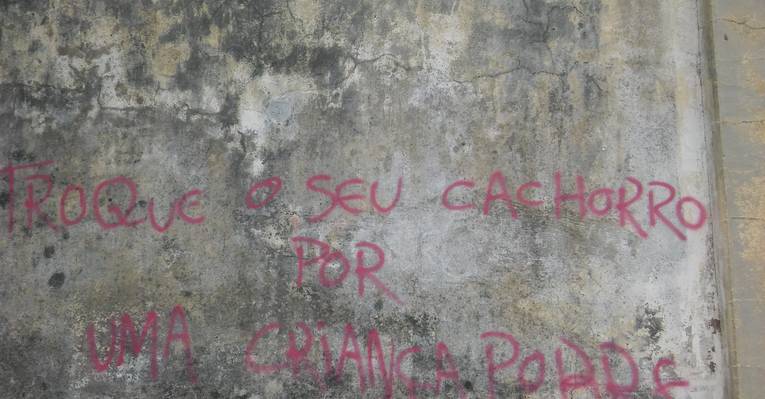 TROQUE O SEU CACHORRO
POR
UMA CRIANÇA POBRE